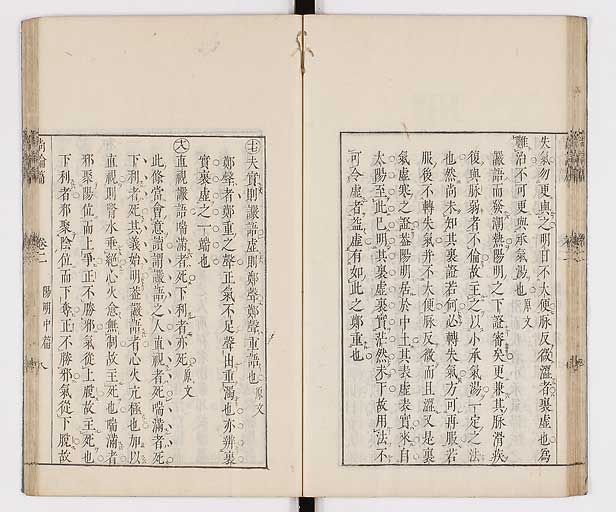 失氣勿更與之明日不大便脉反微濇者裏虛也爲
難治不可更與承氣湯也原文
讝語而發潮熱陽明之下證審矣更兼其脉滑疾
復與脉弱者不倫故主之以小承氣湯一定之法
也然尚未知其裏證若何必轉失氣方可再服若
服後不轉失氣并不大便脉反微而且濇又是裏
氣虛寒之證蓋陽明居於中土其表虛表實來自
太陽至此已明其裏虛裏實茫然未下故用法不
可令虛者益虛有如此之鄭重也
夫實則讝語虛則鄭聲鄭聲重語也原文
鄭聲者鄭重之聲正氣不足聲出重濁也亦辨裏
實裏虛之一端也
直視讝語喘滿者死下利者亦死原文
此條當會意讀謂讝語之人直視者死喘滿者死
下利者死其義始明蓋讝語者心火亢極也加以
直視則腎水垂絕心火愈無制故主死也喘滿者
邪聚陽位而上爭正不勝邪氣從上脫故主死也
下利者邪聚陰位而下奪正不勝邪氣從下脫故
尚論篇 卷二 陽明中篇 八